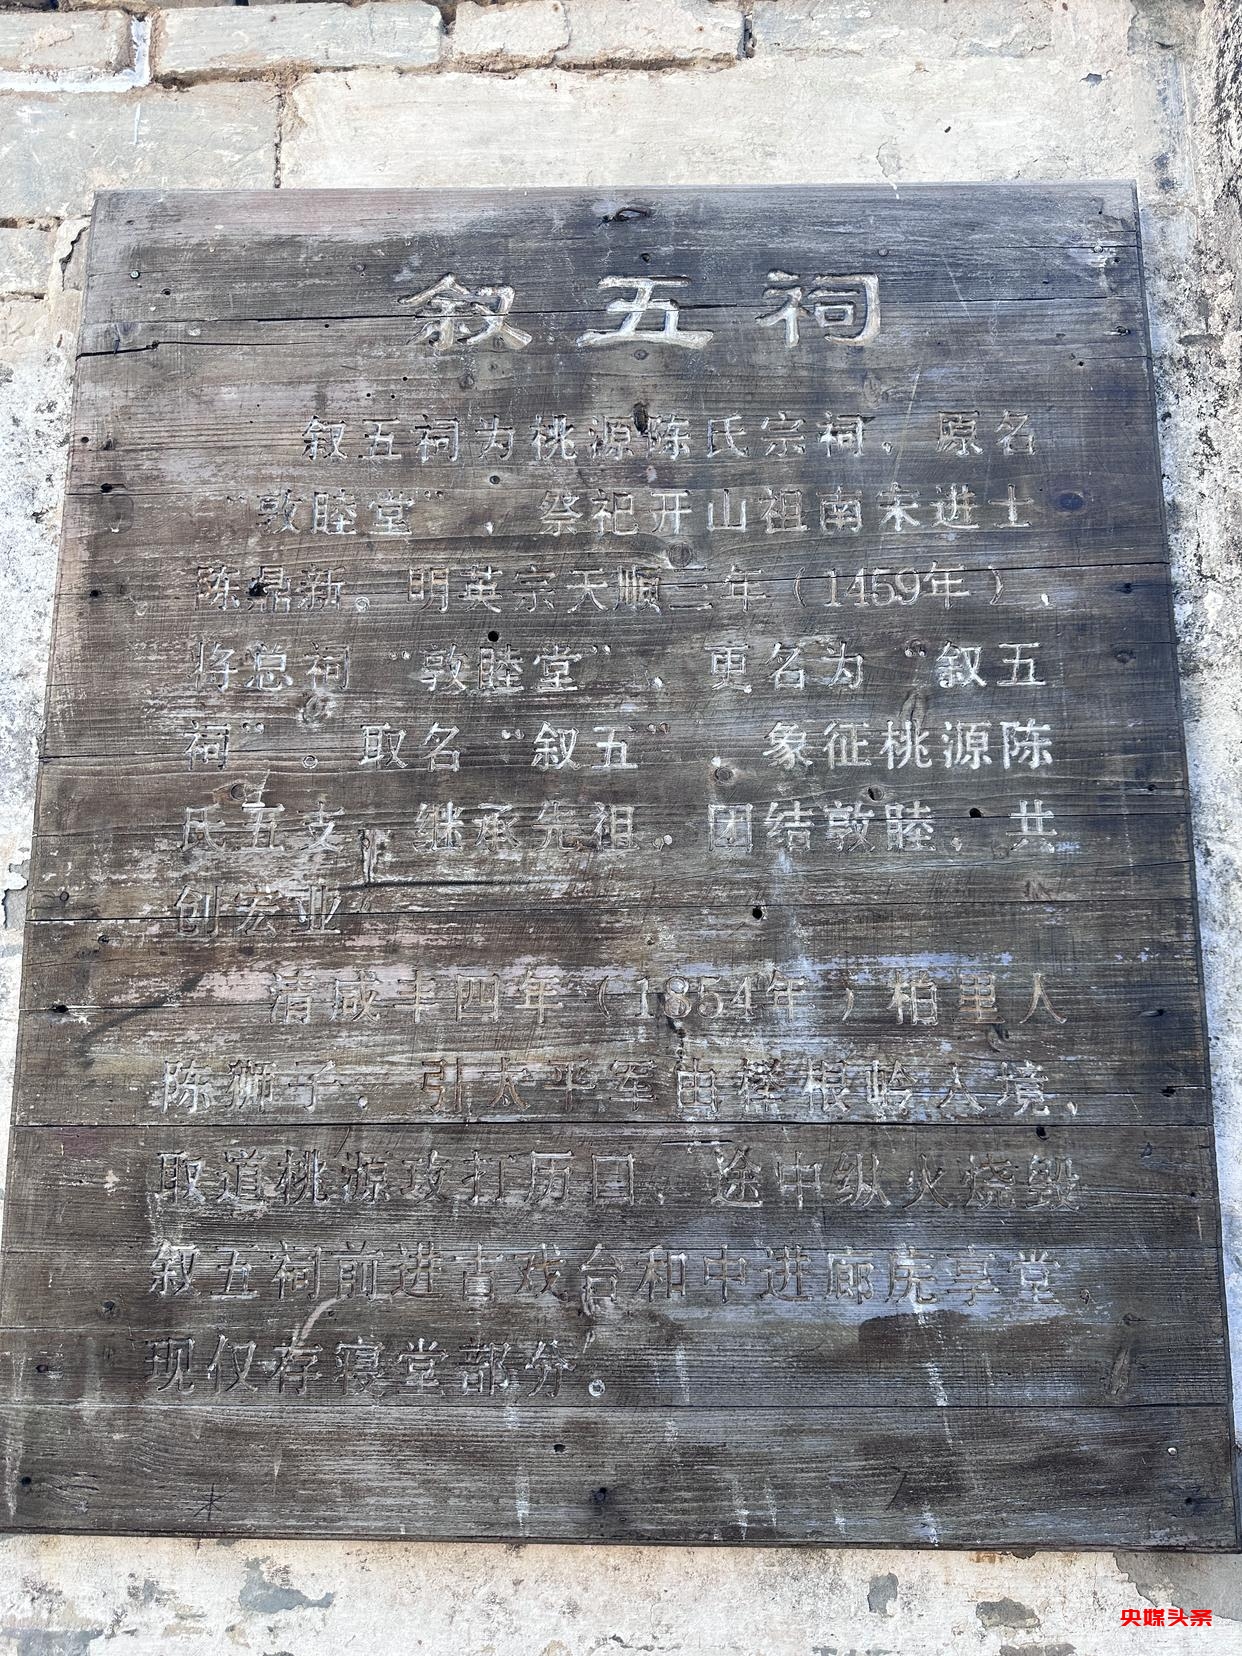 叙五祠
叙五祠为桃源陈氏宗祠，原名
“敦睦堂”，祭祀开山祖南宋进士
陈鼎新。明英宗天顺三年（1459年），
将总祠“敦睦堂”，更名为“叙五
祠”。取名“叙五”，象征桃源陈
氏五支，继承先祖，团结敦睦，共
创宏业
清咸丰四年（1854年）柏里人
陈狮子，引太平军由榉根岭入境，
取道桃源攻打历口，途中纵火烧毁
叙五祠前进古戏台和中进廊庑享堂，
现仅存寝堂部分。
央媒头条